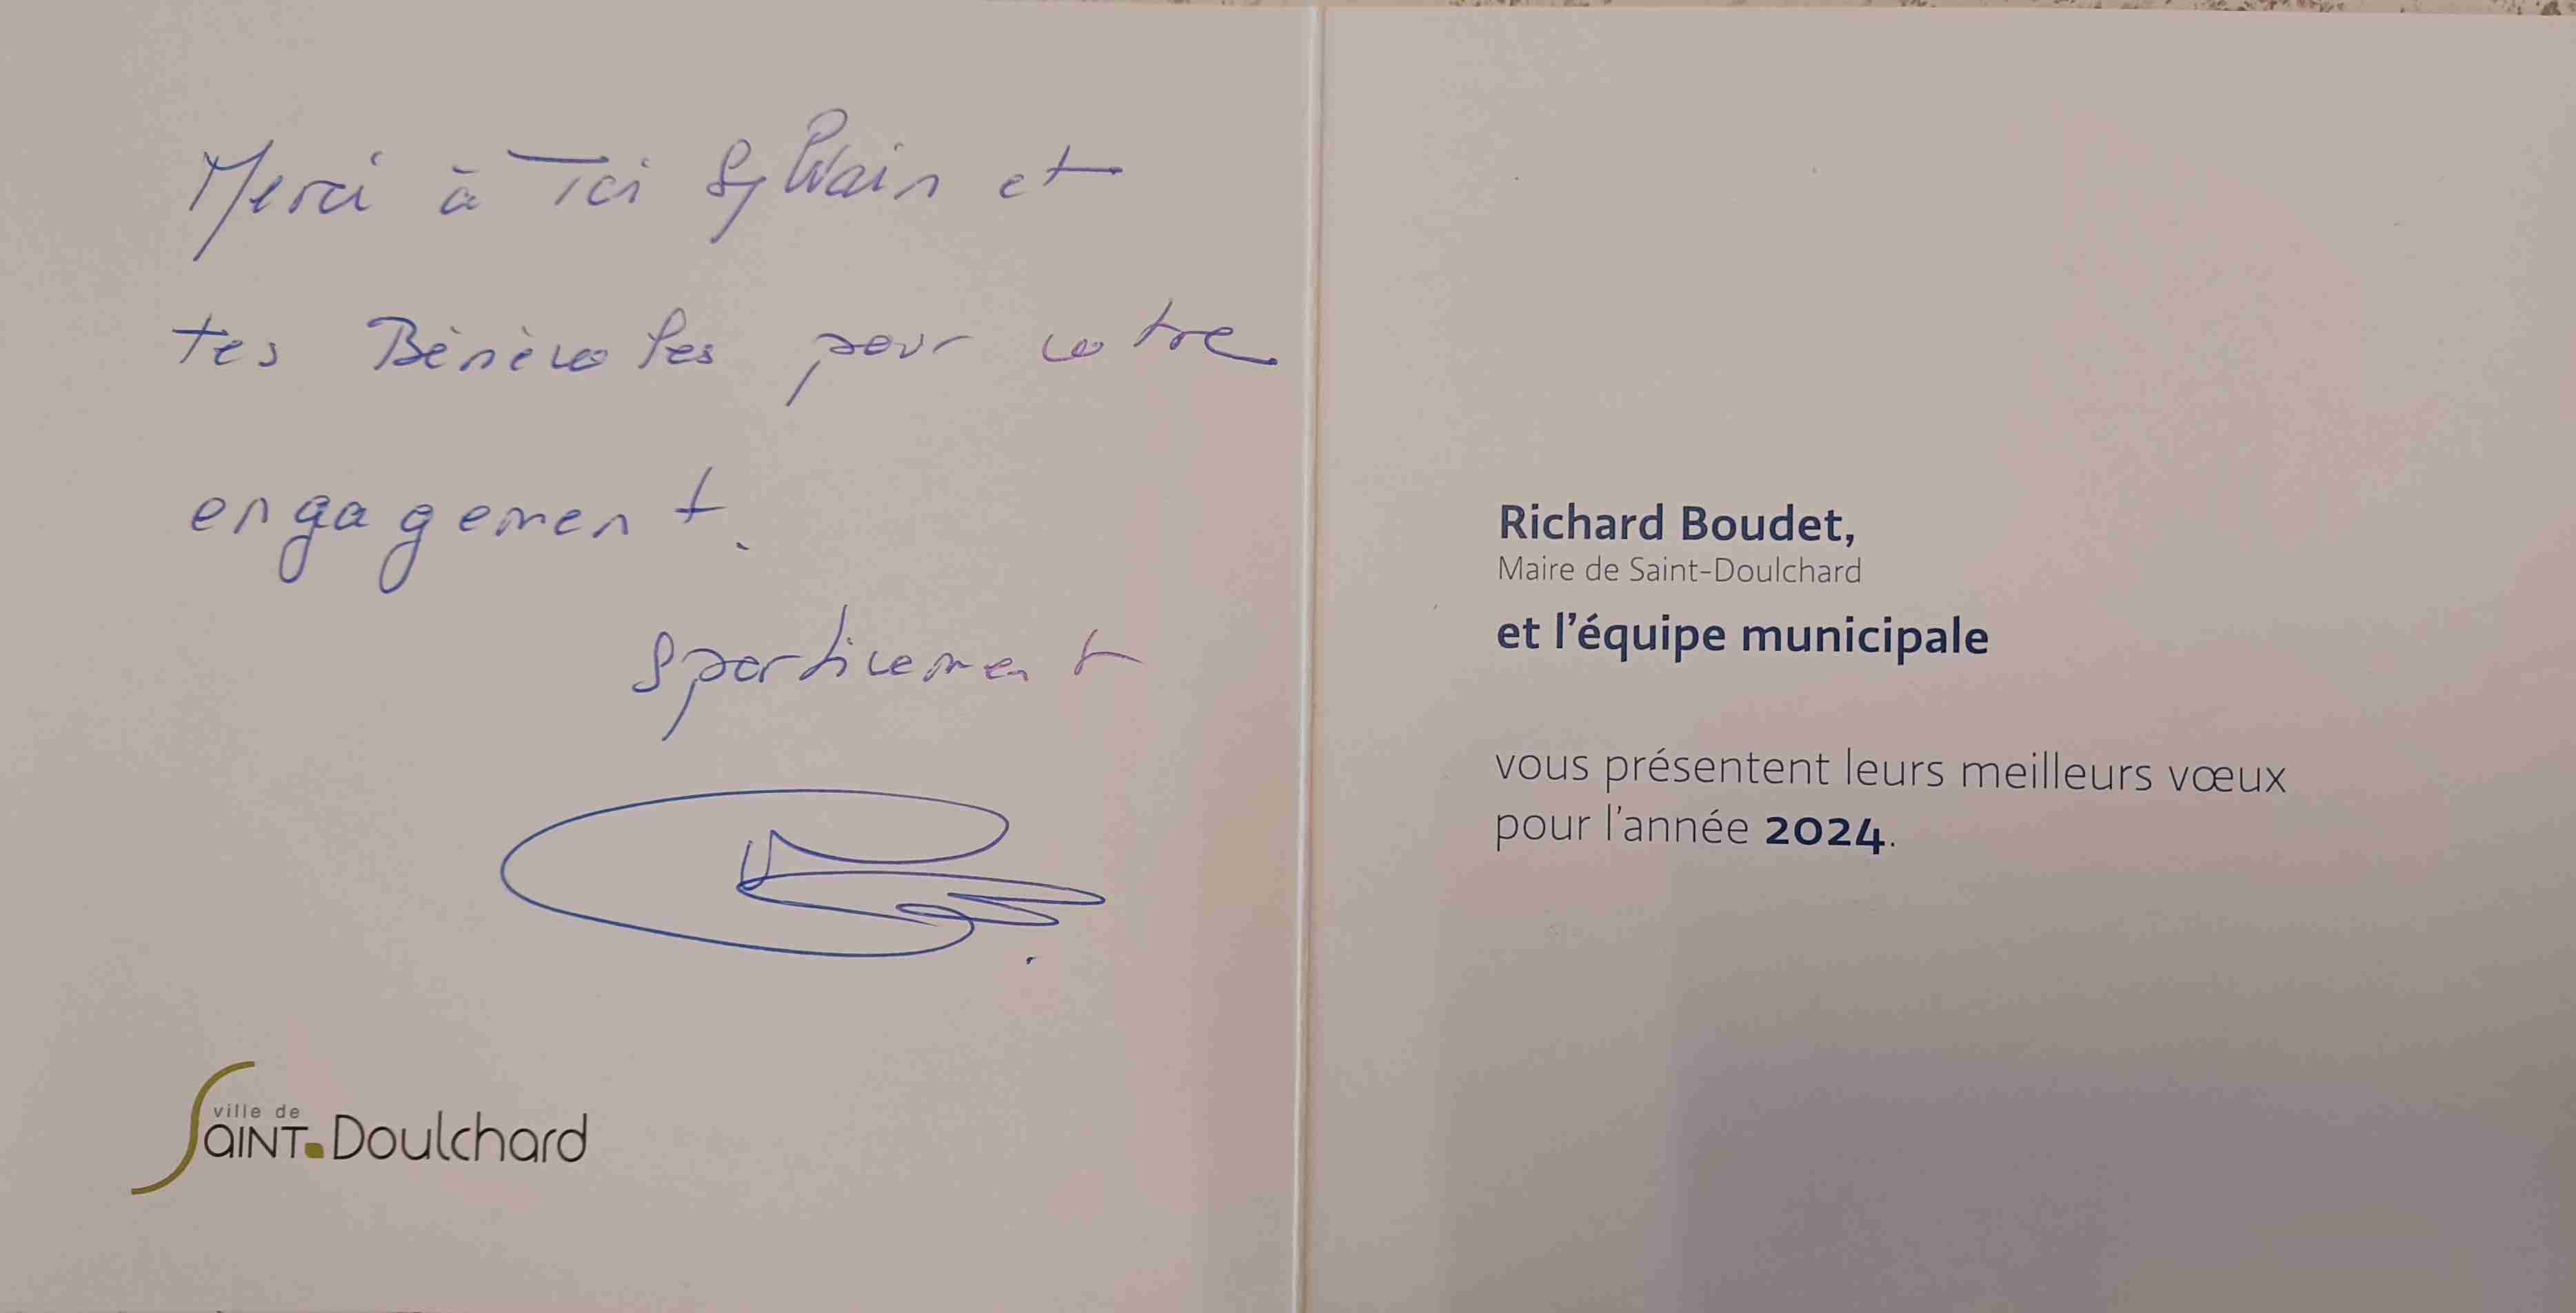 Merci à Toi Sylvain et
tes Bénévoles pour votre
engagement.
Sportivement
ville de
SAINT-Doulchard
Richard Boudet,
Maire de Saint-Doulchard
et l'équipe municipale
vous présentent leurs meilleurs vœux
pour l'année 2024.